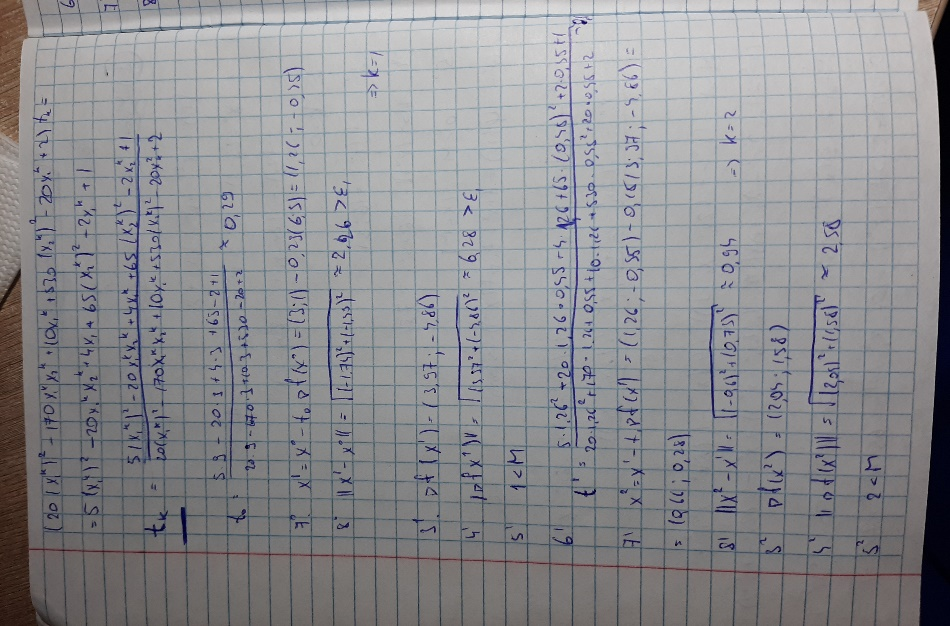 (20(x₁ᵏ)² - 170x₁ᵏx₂ᵏ + 10x₁ᵏ + 530(x₂ᵏ)² - 20x₂ᵏ + 2) t₂ =
= 5(x₁ᵏ)² - 20x₁ᵏx₂ᵏ + 4x₁ + 65(x₂ᵏ)² - 2x₂ᵏ + 1
tₖ = (5(x₁ᵏ)² - 20x₁ᵏx₂ᵏ + 4x₁ᵏ + 65(x₂ᵏ)² - 2x₂ᵏ + 1) / (20(x₁ᵏ)² - 170x₁ᵏx₂ᵏ + 10x₁ᵏ + 530(x₂ᵏ)² - 20x₂ᵏ + 2)
t₀ = (5·9 - 20·3 + 4·3 + 65 - 2 + 1) / (20·9 - 170·3 + 10·3 + 530 - 20 + 2) ≈ 0,29
7⁰ x¹ = x⁰ - t₀ ∇f(x⁰) = (3; 1) - 0,29(6; 5) = (1,26; -0,55)
8⁰ ||x¹ - x⁰|| = √((-1,75)² + (-1,55)²) ≈ 2,26 > ε₁ => k=1
3¹. ∇f(x¹) = (3,97; -4,86)
4¹ ||∇f(x¹)|| = √(3,97² + (-4,86)²) ≈ 6,28 > ε₁
5¹ 1 < M
6¹ t¹ = (5·1,26² + 20·1,26·0,55 + 4·1,26 + 65·(0,55)² + 2·0,55 + 1) / (20·1,26² + 170·1,26·0,55 + 10·1,26 + 530·0,55² + 20·0,55 + 2)
7¹ x² = x¹ - t₁∇f(x¹) = (1,26; -0,55) - 0,15(3,97; -4,86) =
= (0,66; 0,28)
8¹ ||x² - x¹|| = √((-0,6)² + (0,75)²) ≈ 0,94 => k=2
3² ∇f(x²) = (2,04; 1,58)
4² ||∇f(x²)|| = √((2,04)² + (1,58)²) ≈ 2,58
5² 2 < M